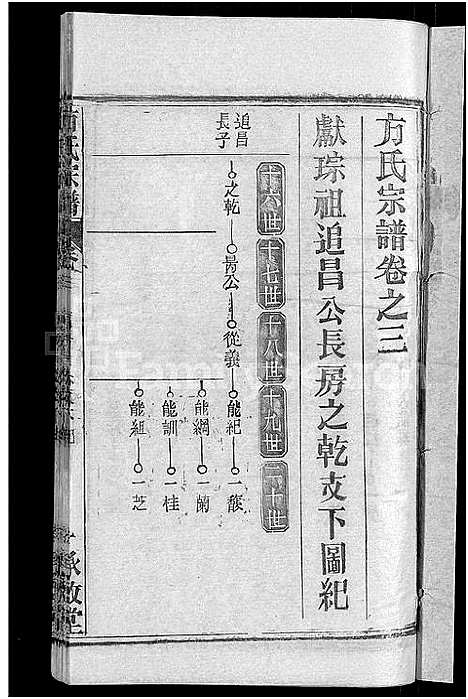 方氏宗譜卷之三
獻琮祖追昌公長房之乾支下圖紀
十六世
十七世
十八世
十九世
二十世
追昌長子
之乾
昺公
從義
能紀
一馥
能綱
一蘭
能訓
一桂
能組
一芝
方氏宗譜